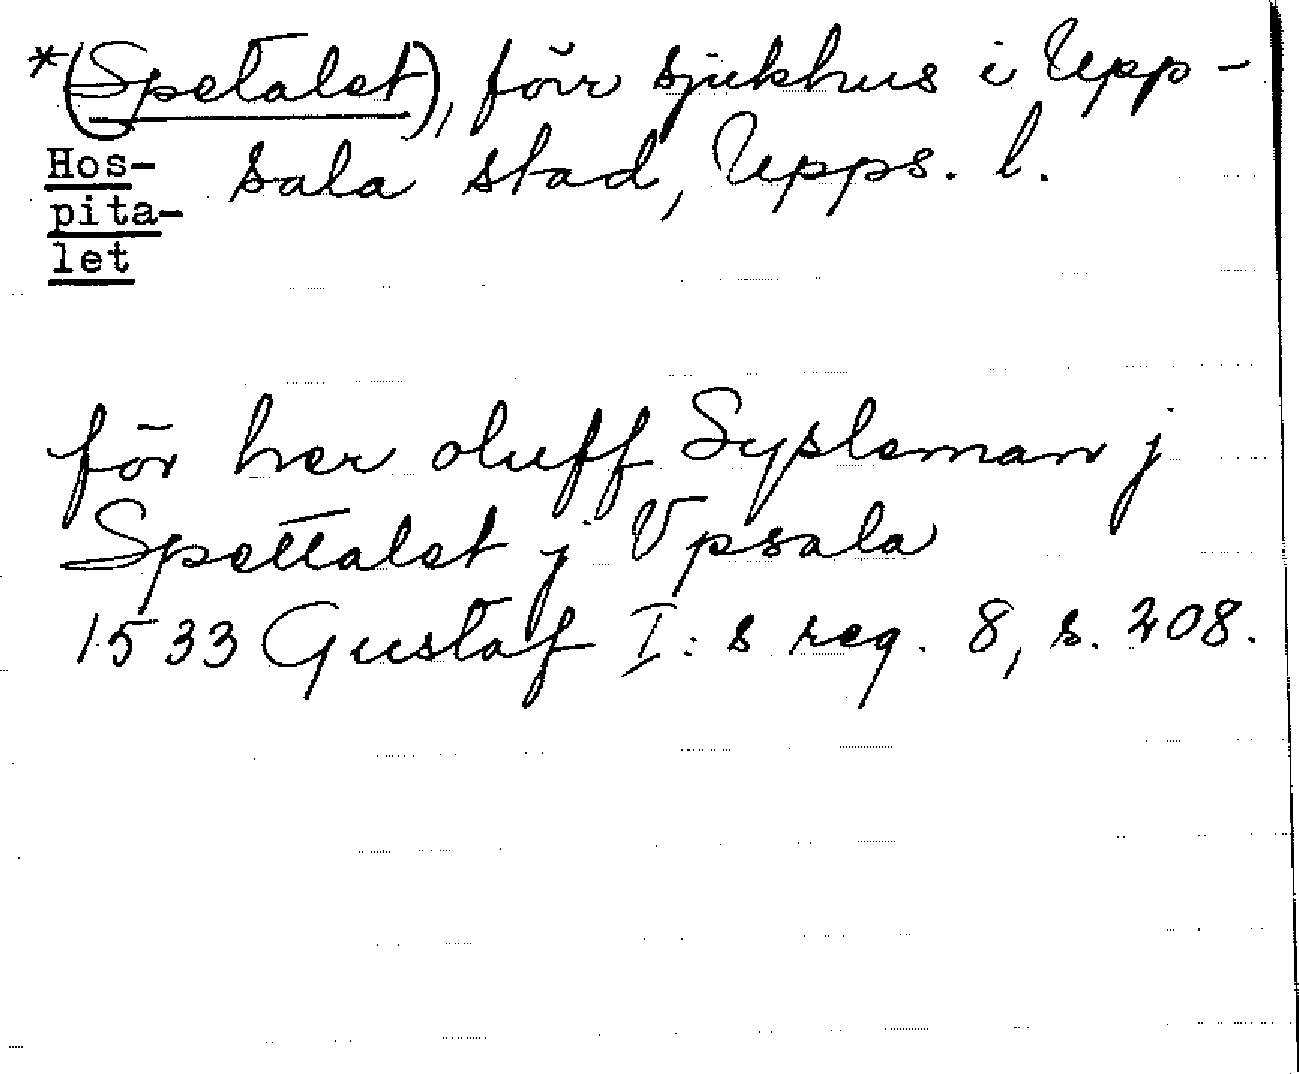 *(Spetalet), förr sjukhus i Upp-
sala stad, Upps. l.
Hos-
pita-
let
för her oluff Sysleman j
Spettalet j Vpsala
1533 Gustaf I:s reg. 8, s. 208.